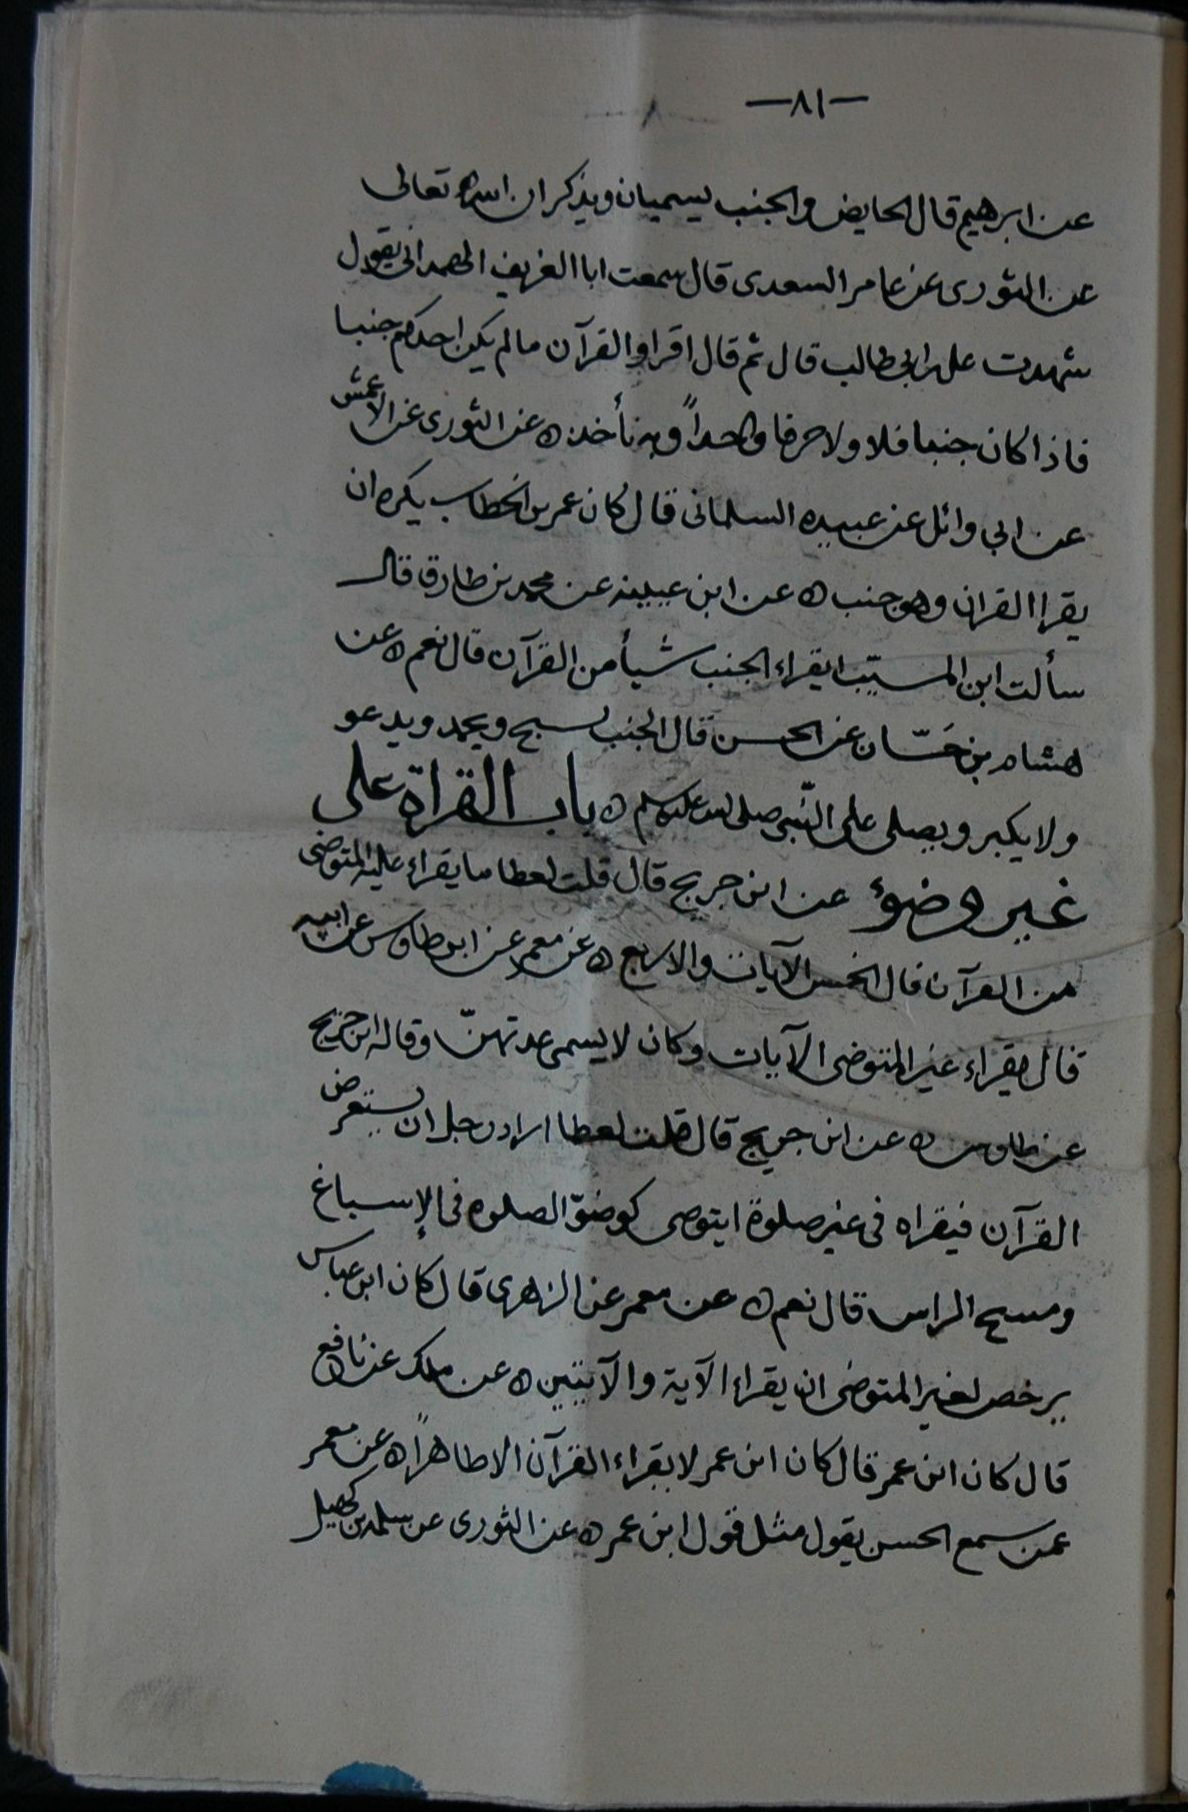 —٨١—
عن ابرهيم قال الحايض والجنب يسميان ويذكران اسم الله تعالى
عن الثورى عن عامر السعدى قال سمعت ابا الغريف الهمدانى يقول
شهدت على ابى طالب قال ثم قال اقراوا القرآن مالم يكن احدكم جنبا
فاذا كان جنبا فلا ولا حرفا واحداً وبه نأخذ ه عن الثورى عن الاعمش
عن ابي وائل عن عبيده السلمانى قال كان عمر بن الخطاب يكره ان
يقرا القران وهو جنب ه عن ابن عيينه عن محمد بن طارق قال
سألت ابن المسيّب ايقراء الجنب شيأ من القرآن قال نعم ه عن
هشام بن حَسّان عن الحسن قال الجنب يسبح ويحمد ويدعو
ولا يكبر ويصلى على النّبى صلى الله عليه وسلم ه باب القراة على
غير وضوء عن ابن جريج قال قلت لعطا ما يقراء عليه المتوضى
من القرآن قال الخمس الآيات والاربع ه عن معمر عن ابن طاوس عن ابيه
قال يقراء غير المتوضى الآيات وكان لا يسمى عدتهنّ وقاله ابن جريج
عن طاوس ه عن ابن جريج قال قلت لعطا اراد رجل ان يستعرض
القرآن فيقراه فى غير صلوة ايتوضى كوضوّ الصلوه فى الإسباغ
ومسح الراس قال نعم ه عن معمر عن الزهرى قال كان ابن عباس
يرخص لغير المتوضى ان يقراء الآية والآيتين ه عن ملك عن نافع
قال كان ابن عمر قال كان ابن عمر لا يقراء القرآن الا طاهراً ه عن معمر
عمن سمع الحسن يقول مثل قول ابن عمر ه عن الثورى عن سلمه بن كهيل